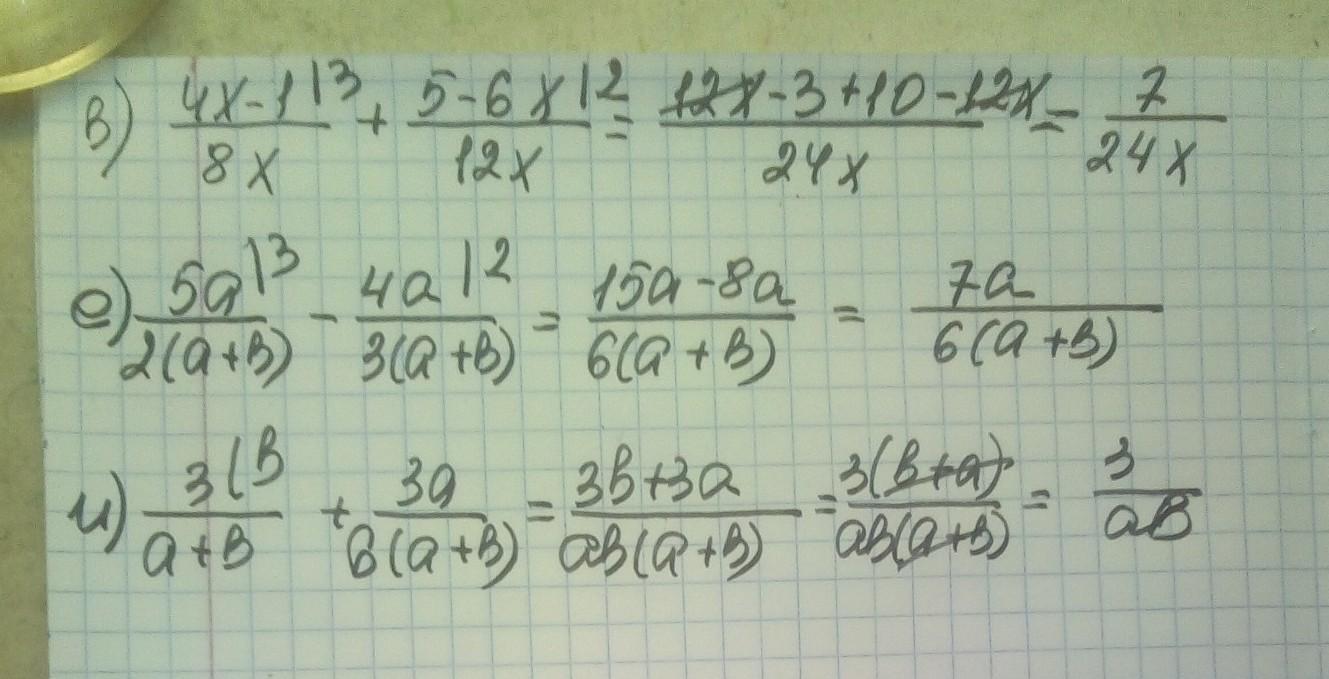 в) (4x-1)/(8x) |3 + (5-6x)/(12x) |2 = (12x-3+10-12x)/(24x) = 7/(24x)
е) 5a/(2(a+в)) |3 - 4a/(3(a+в)) |2 = (15a-8a)/(6(a+в)) = 7a/(6(a+в))
и) 3/(a+в) |в + 3a/(в(a+в)) = (3в+3a)/(aв(a+в)) = 3(в+a)/(aв(a+в)) = 3/(aв)